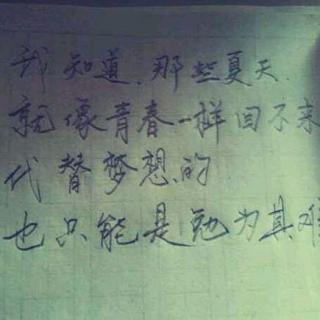 我知道.那些夏天.
就像青春一样回不来
代替梦想的
也只能是勉为其难